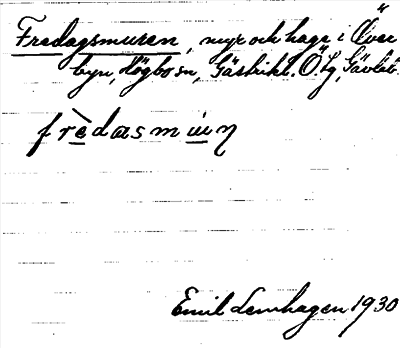 Fredagsmuren, myr och hage i Över
byn, Högbo sn, Gästrikl. Ö. tg, Gävleb.
fredasmurn
Emil Lenhagen 1930